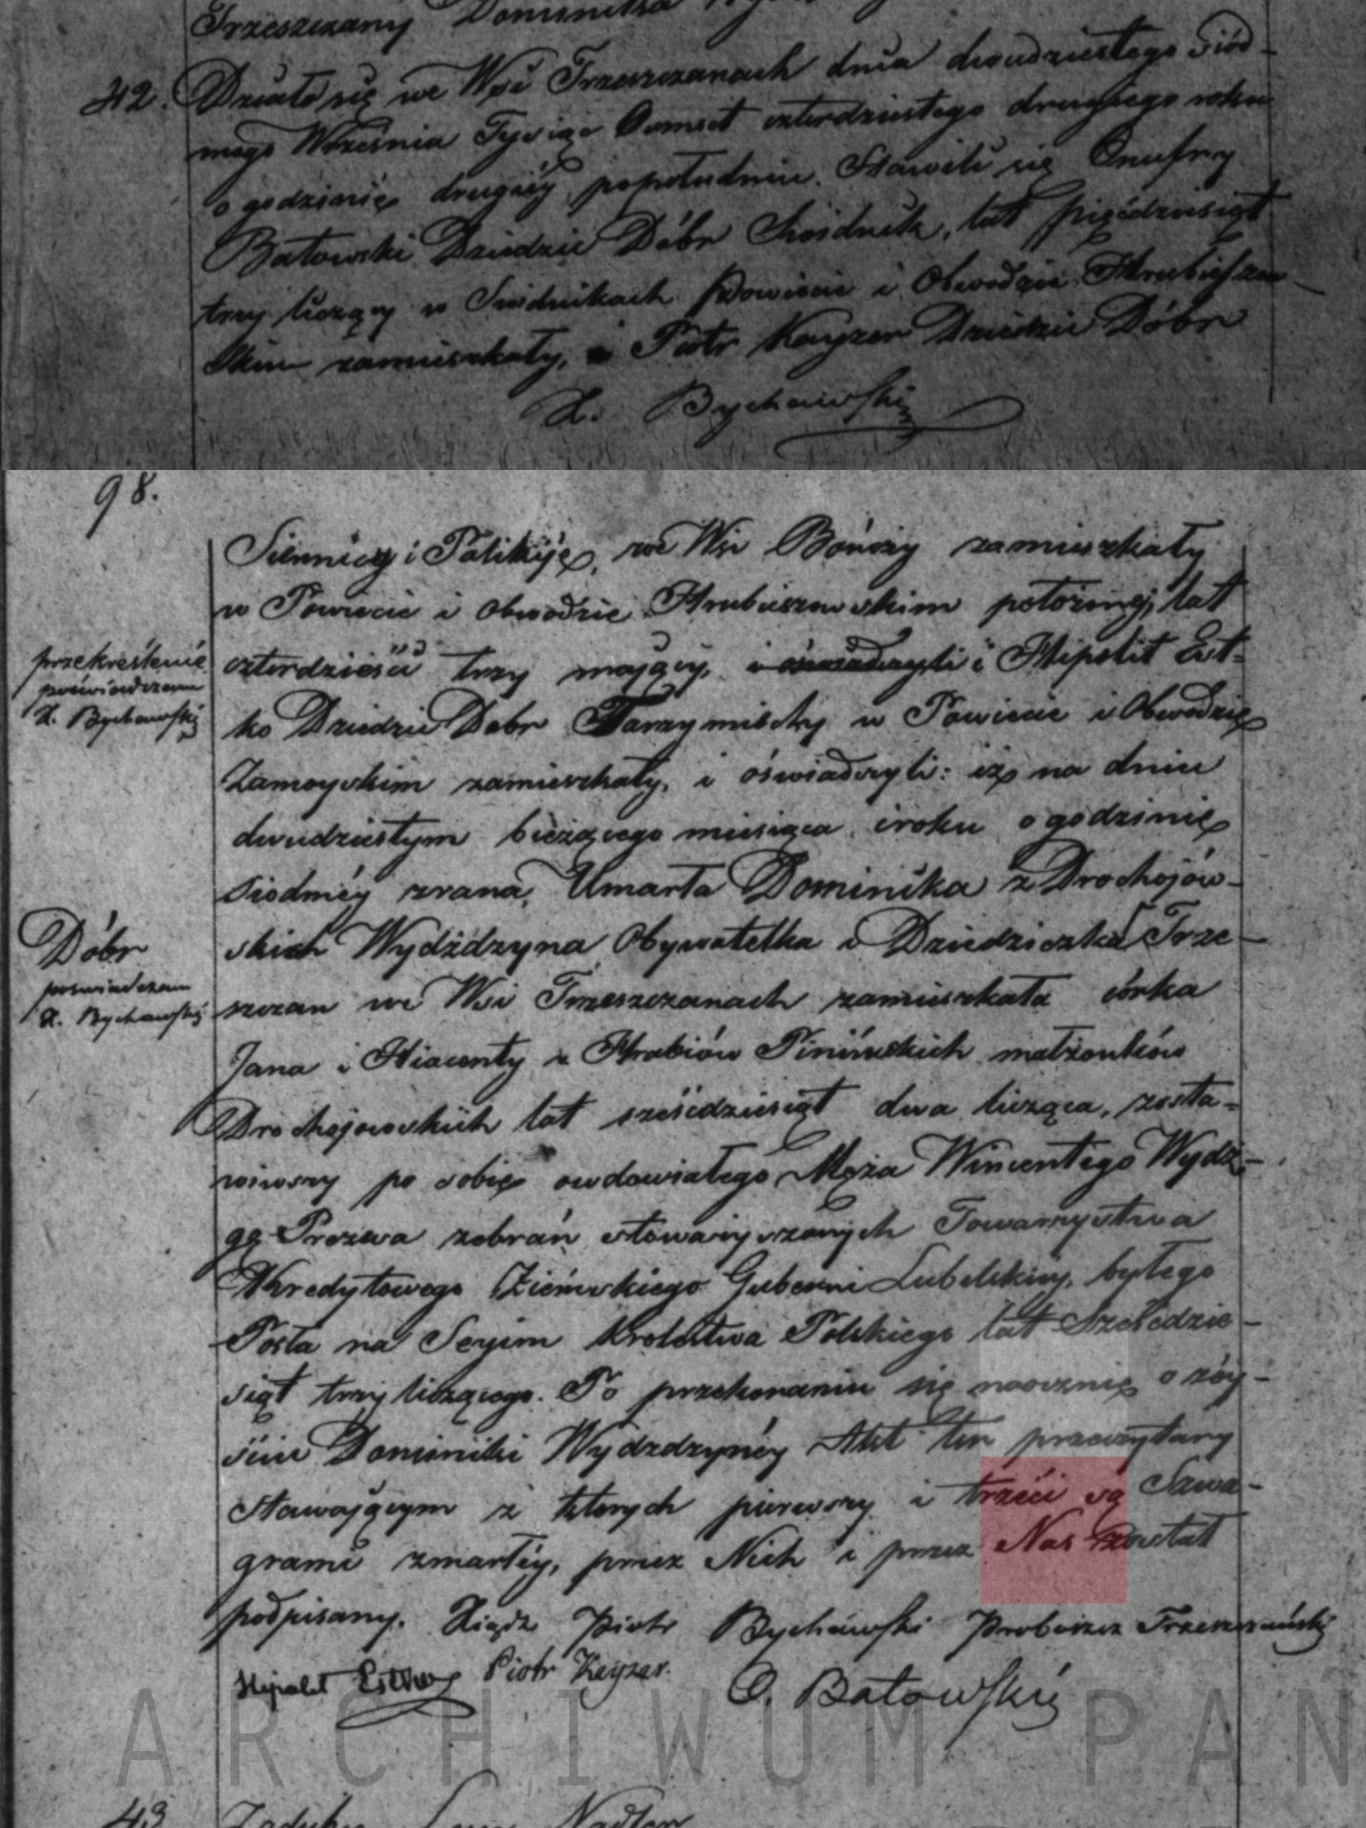 Trzeszczany Dominika
42. Działo się we Wsi Trzeszczanach dnia dwudziestego siód-
mego Września Tysiąc Osmset czterdziestego drugiego roku
o godzinie drugiéy popołudniu. Stawili się Onufry
Batowski Dziedzic Dóbr Świdnik, lat pięćdziesiąt
trzy liczący w Swidnikach Powiecie i Obwodzie Hrubieszow-
skim zamieszkały, i Piotr Kayzer Dziedzic Dóbr
X. Bychawski
98.
Siennicy i Polikiję, we Wsi Bończy zamieszkały
w Powiecie i Obwodzie Hrubieszowskim położonej, lat
czterdzieści trzy mający, i oświadczyli i Hipolit Est-
ko Dziedzic Dobr Tarzymiechy w Powiecie i Obwodzie
Zamoyskim zamieszkały, i oświadczyli: iż na dniu
dwudziestym bieżącego miesiąca i roku o godzinie
siodméy zrana, Umarła Dominika z Drochojów-
skich Wydżdzyna Obywatelka i Dziedziczka Trze-
szczan we Wsi Trzeszczanach zamieszkała córka
Jana i Hiacenty z Hrabiów Pinińskich małżonków
Drochojowskich lat sześćdziesiąt dwa licząca, zosta-
wiwszy po sobie owdowiałego Męża Wincentego Wydż-
gę Prezesa zebrań stowarzyszonych Towarzystwa
Kredytowego Ziemskiego Gubernii Lubelskiey, byłego
Posła na Seyim Krolestwa Polskiego lat Sześćdzie-
siąt trzy liczącego. Po przekonaniu się naocznie o zéy-
ściu Dominiki Wydzdzynéy Akt ten przeczytany
Stawającym z których pierwszy i trzeci są Szwa-
grami zmarłéy, przez Nich i przez Nas został
podpisany. Xiądz Piotr Bychawski Proboszcz Trzeszczański
Hipolit Estko Piotr Kayzer. O. Batowski
przekreślenie
poświadczam
X. Bychawski
Dóbr
poswiadczam
X. Bychawski
ARCHIWUM PAŃ
43